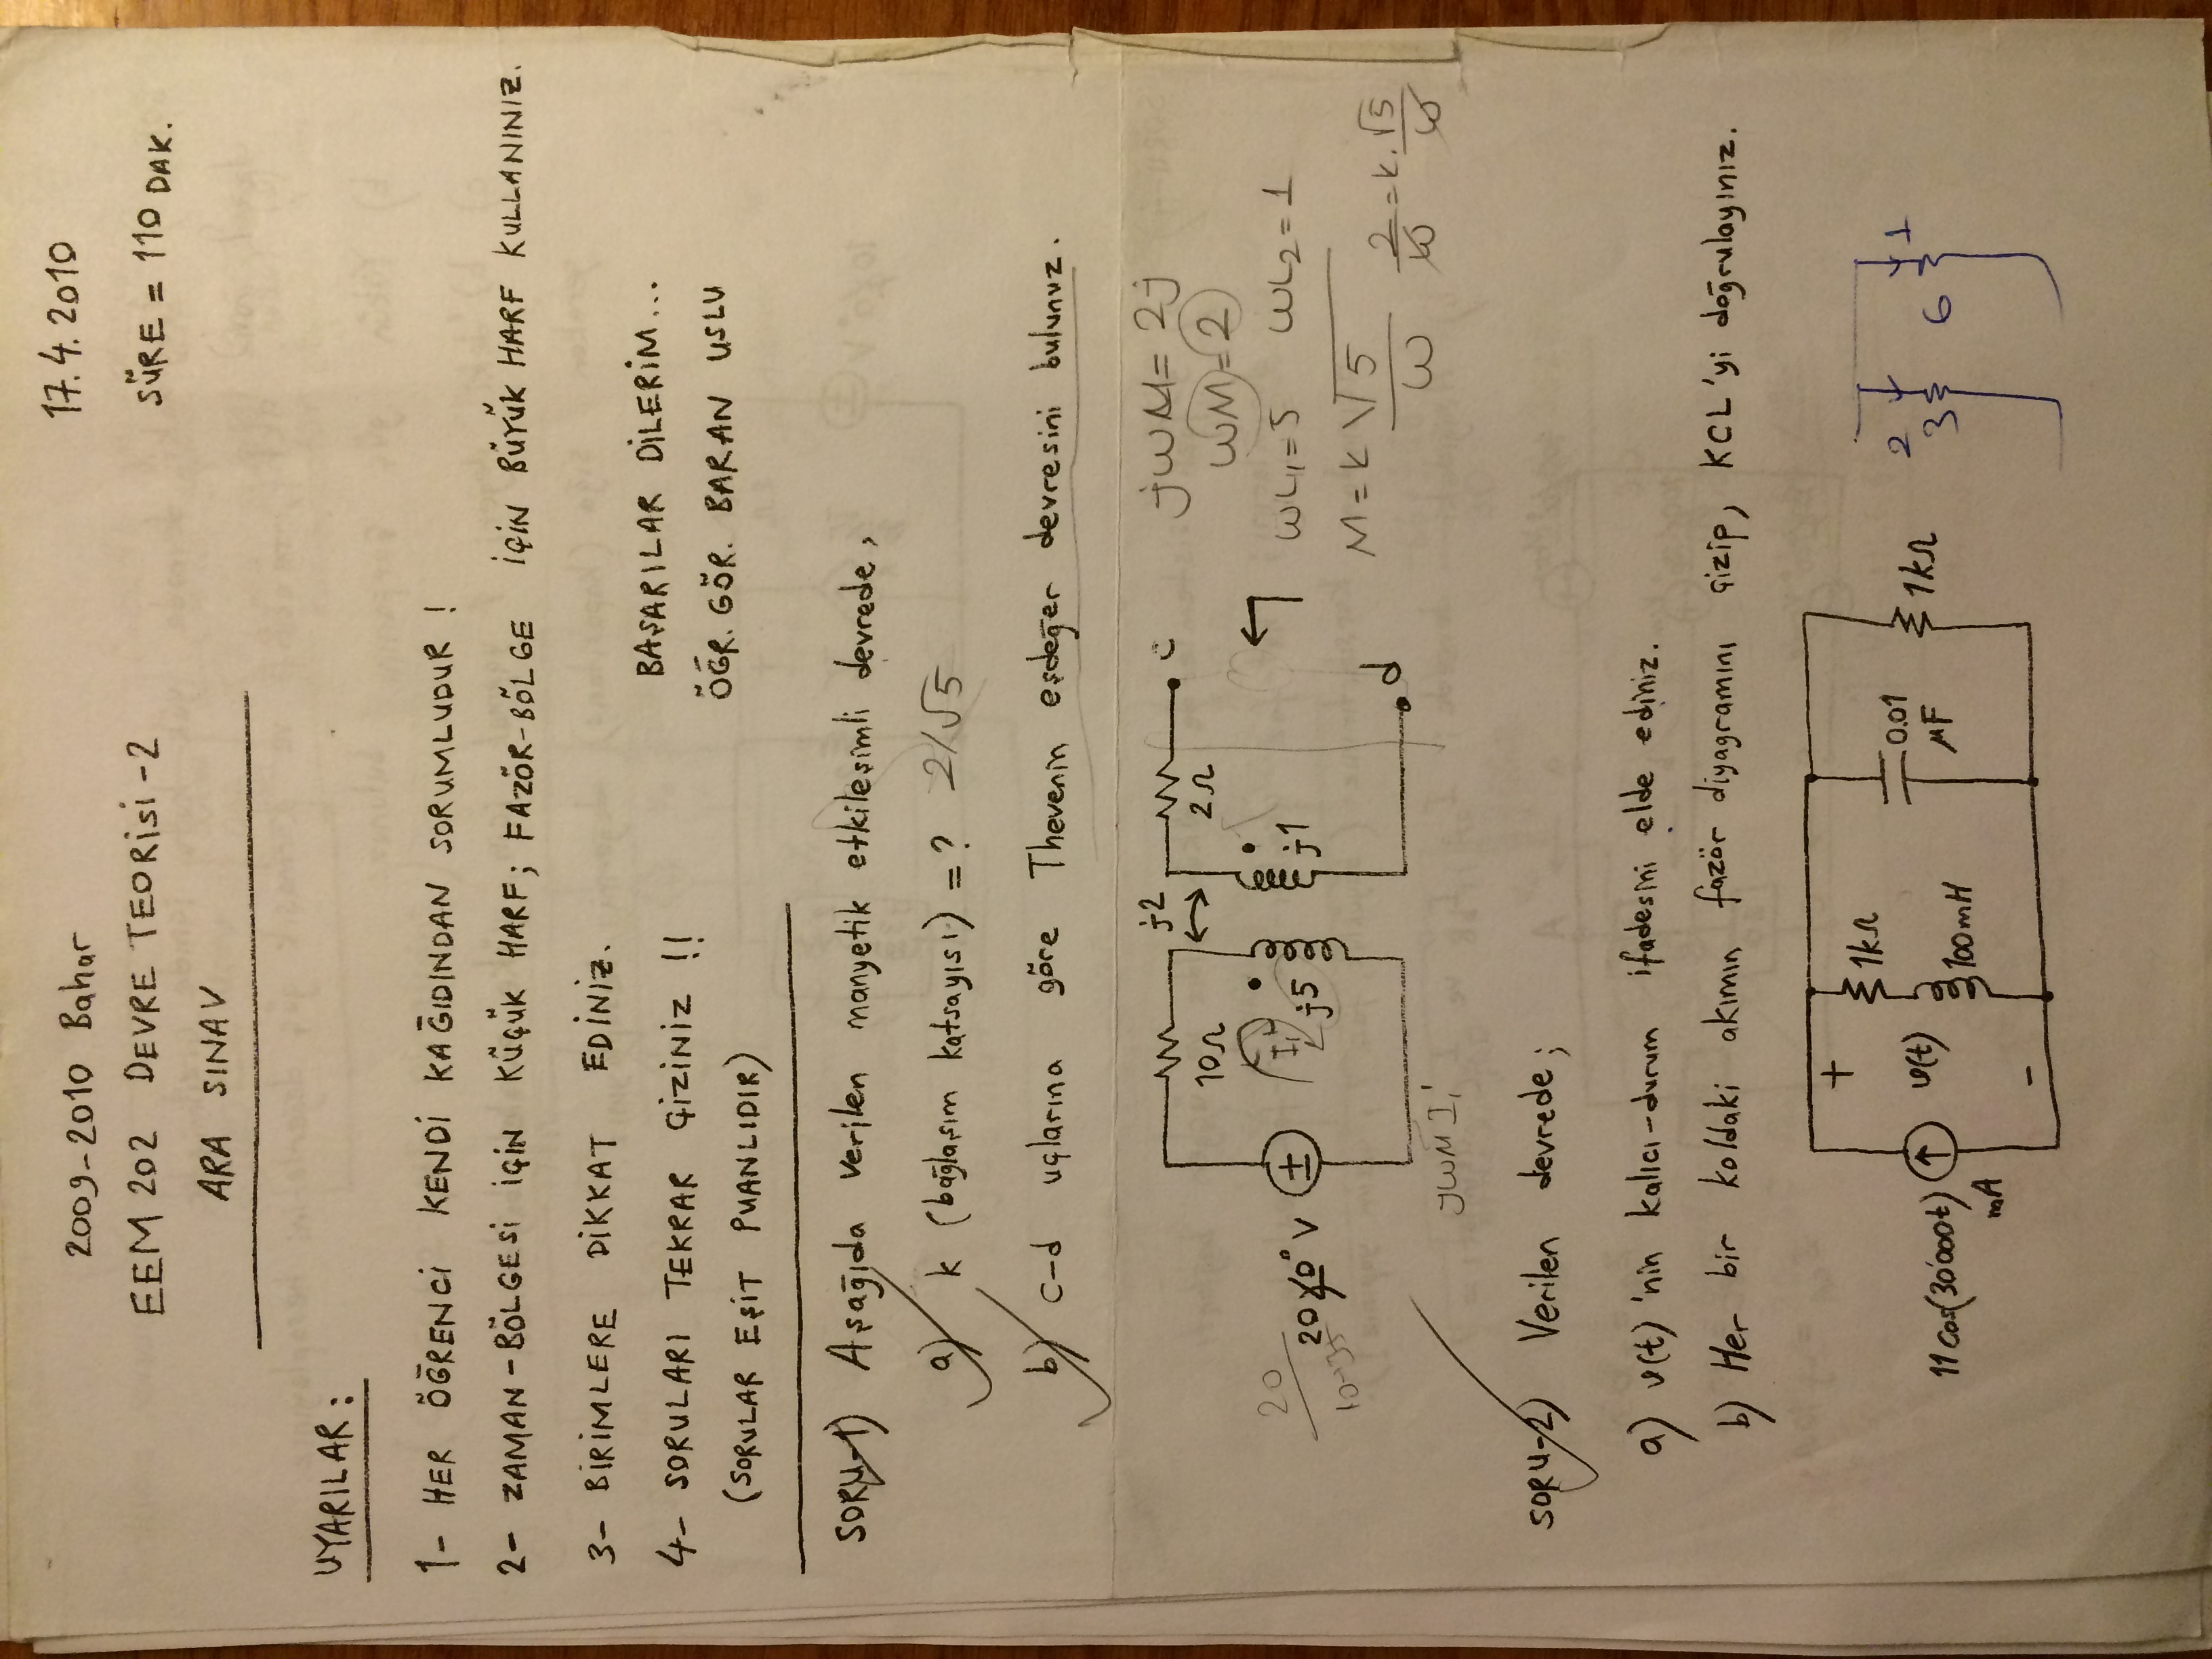 2009-2010 Bahar
17.4.2010
EEM 202 DEVRE TEORİSİ-2
SÜRE = 110 DAK.
ARA SINAV
UYARILAR :
1- HER ÖĞRENCİ KENDİ KAĞIDINDAN SORUMLUDUR !
2- ZAMAN-BÖLGESİ İÇİN KÜÇÜK HARF; FAZÖR-BÖLGE İÇİN BÜYÜK HARF KULLANINIZ.
3- BİRİMLERE DİKKAT EDİNİZ.
4- SORULARI TEKRAR ÇİZİNİZ !!
(SORULAR EŞİT PUANLIDIR)
BAŞARILAR DİLERİM...
ÖĞR. GÖR. BARAN USLU
SORU-1) Aşağıda verilen manyetik etkileşimli devrede,
a) k (bağlaşım katsayısı) = ? 2/√5
b) c-d uçlarına göre Thevenin eşdeğer devresini bulunuz.
10Ω
j2
2Ω
c
20∠0° V
I₁'
j5
j1
d
20
jωM I₁'
jωM = 2j
ωM = 2
ωL₁ = 5 ωL₂ = 1
M = k √5/ω 2/ω = k.√5/ω
SORU-2) Verilen devrede;
a) v(t)'nin kalıcı-durum ifadesini elde ediniz.
b) Her bir koldaki akımın fazör diyagramını çizip, KCL'yi doğrulayınız.
11 cos(30'000t)
mA
+
v(t)
-
1kΩ
100mH
0.01
μF
1kΩ
2
3
1
6